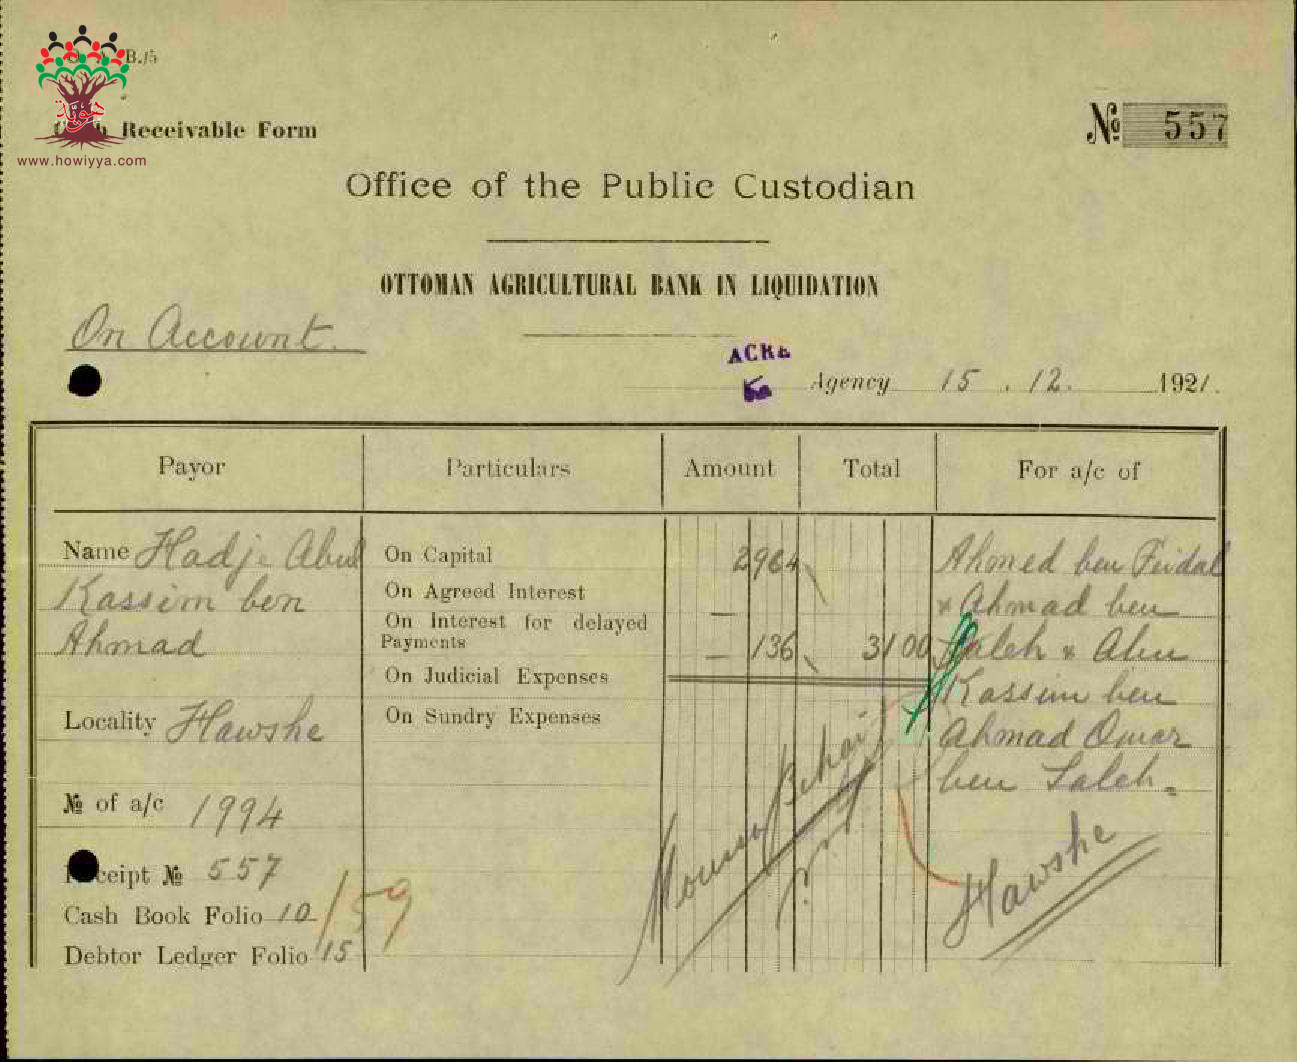 B./5
هوية
www.howiyya.com
Receivable Form
№ 557
Office of the Public Custodian
OTTOMAN AGRICULTURAL BANK IN LIQUIDATION
On Account.
ACRE
Agency 15 . 12. 1921.
Payor Particulars Amount Total For a/c of
Name Hadje Abul
Kassim ben
Ahmad
Locality Hawshe
№ of a/c 1994
Receipt № 557
Cash Book Folio 10
159
Debtor Ledger Folio 15
On Capital 2964
On Agreed Interest —
On Interest for delayed
Payments — 136 3100
On Judicial Expenses
On Sundry Expenses
Ahmed ben Feidal
& Ahmad ben
Saleh & Abu
Kassim ben
Ahmad Omar
ben Saleh.
Hawshe